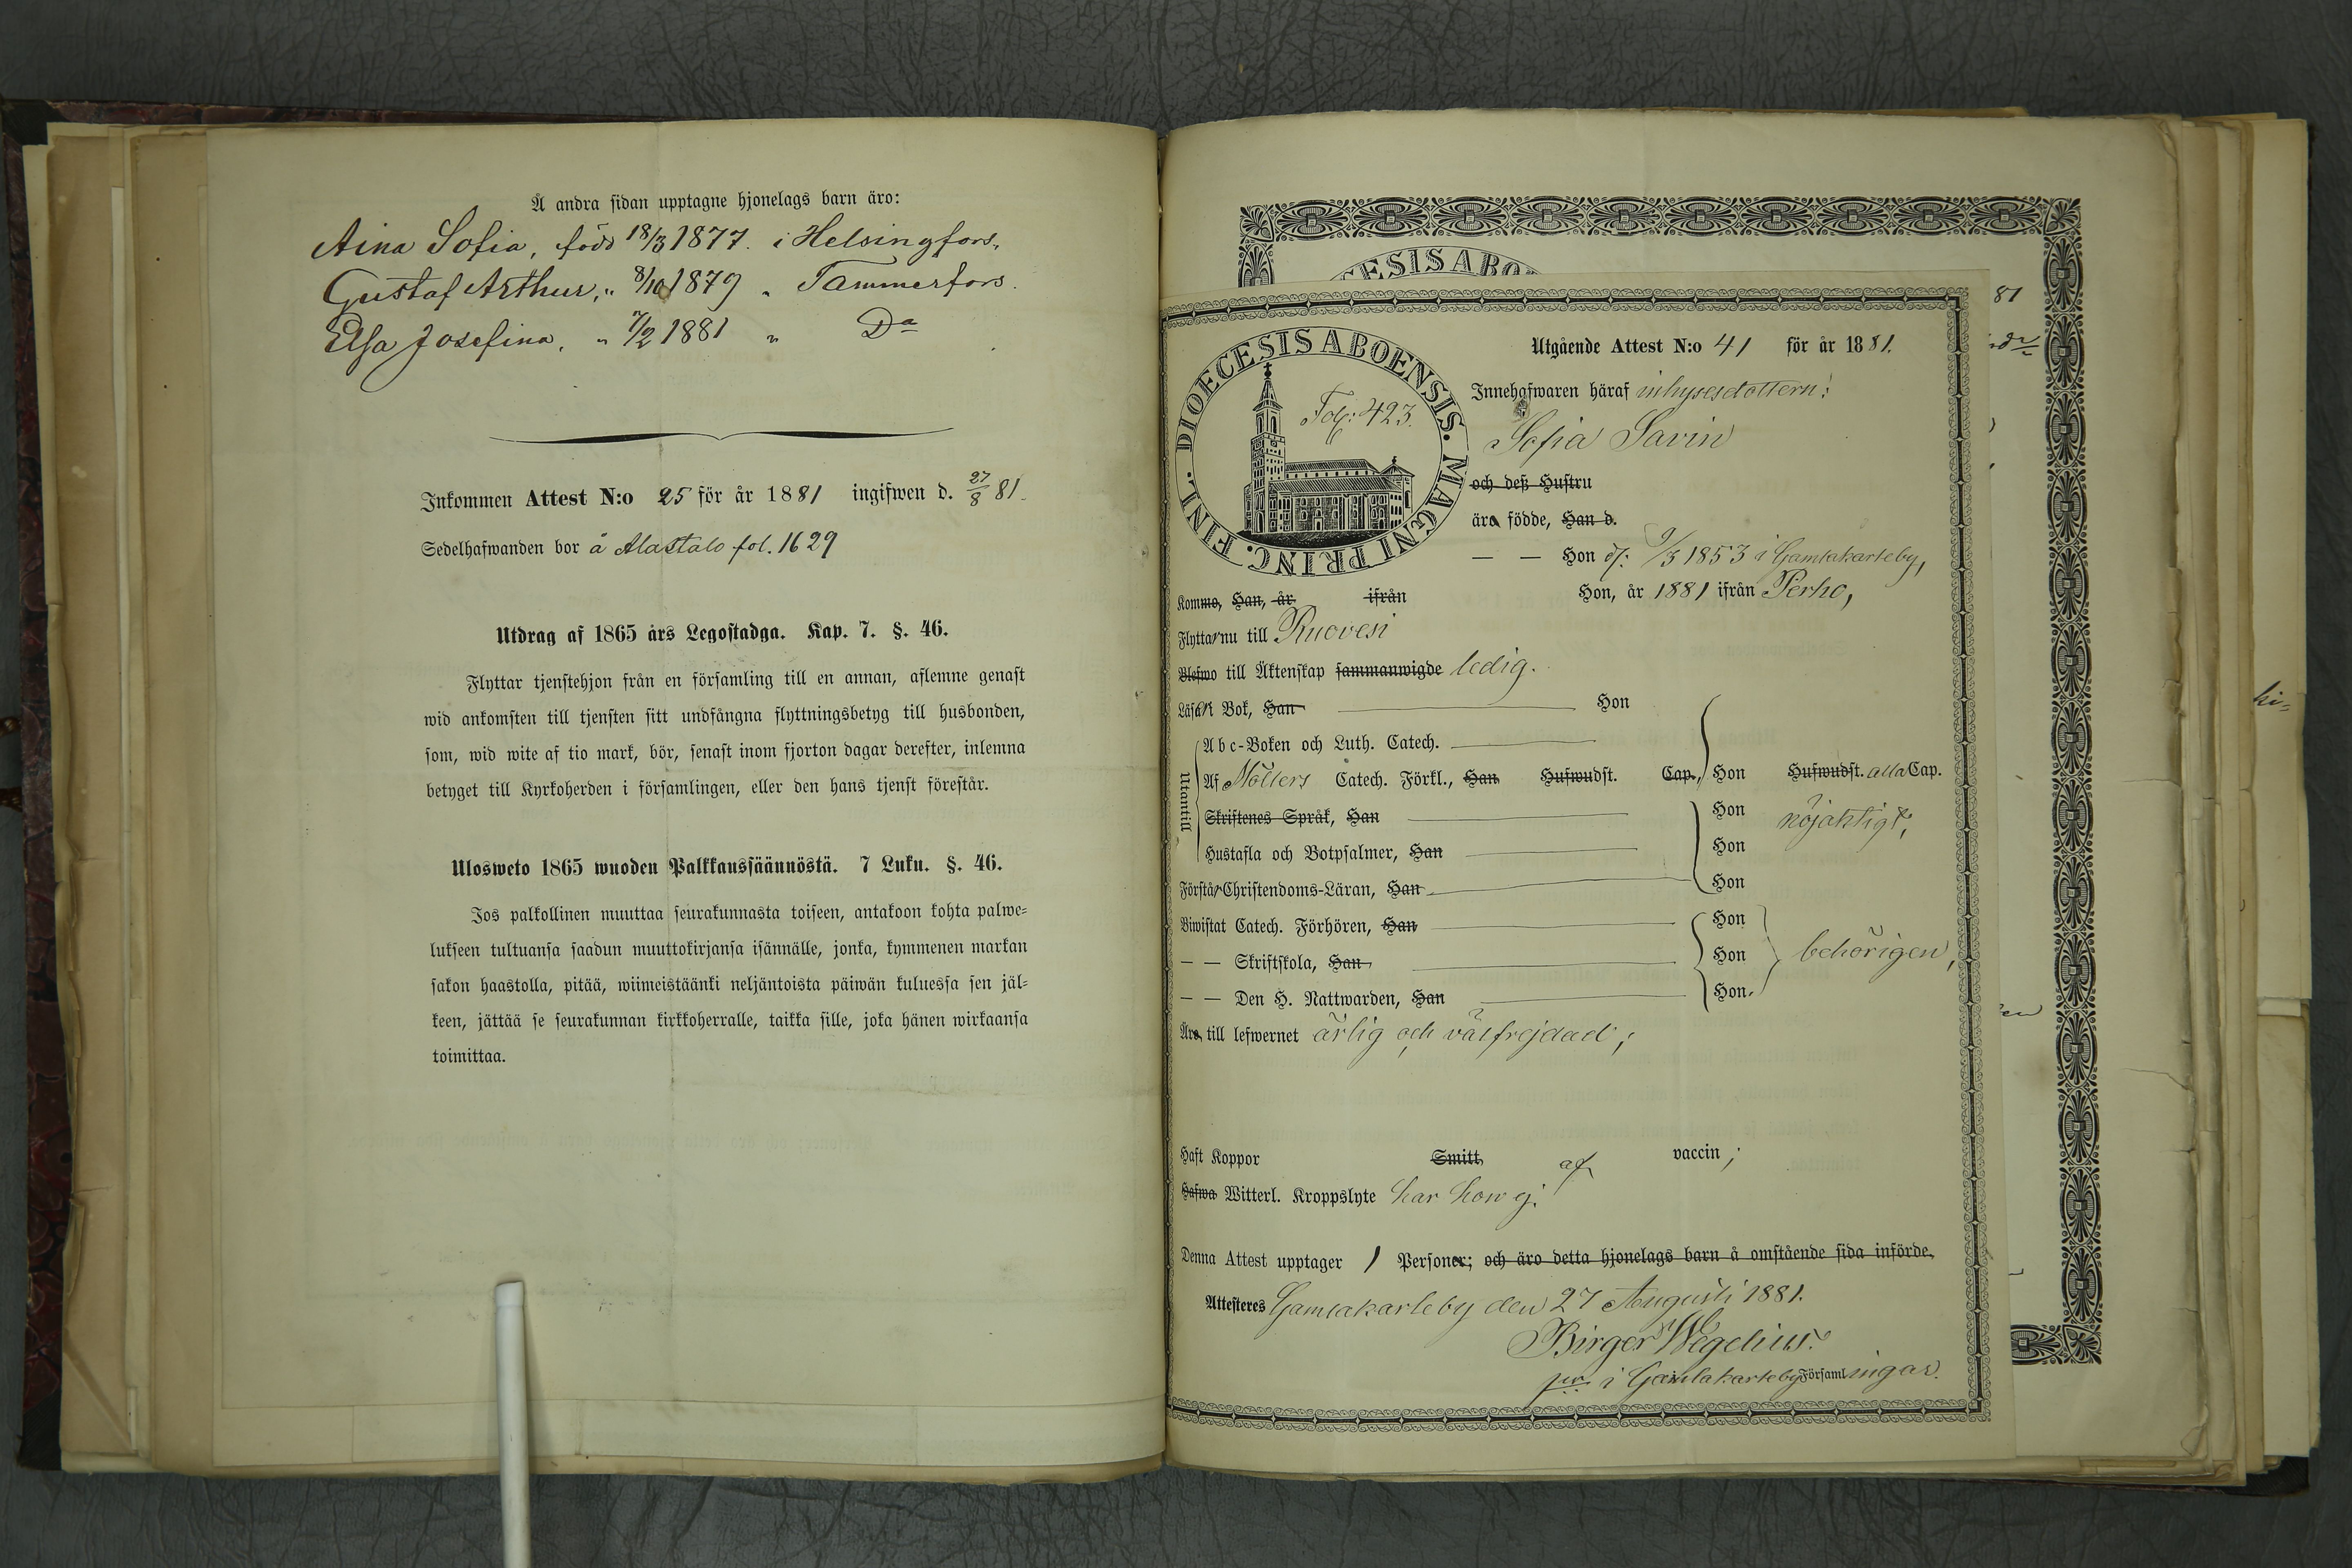 Å andra sidan upptagne hjonelags barn äro:
Aina Sofia, född 18/3 1877. i Helsingfors.
Gustaf Arthur, " 8/10 1879 " Tammerfors.
Elsa Josefina, " 7/2 1881 " Da
Inkommen Attest N:o 25 för år 1881 ingifwen d. 27/8 81.
Sedelhafwanden bor å Alastalo fol. 1629
Utdrag af 1865 års Legostadga. Kap. 7. §. 46.
Flyttar tjenstehjon från en församling till en annan, aflemne genast
wid ankomsten till tjensten sitt undfångna flyttningsbetyg till husbonden,
som, wid wite af tio mark, bör, senast inom fjorton dagar derefter, inlemna
betyget till Kyrkoherden i församlingen, eller den hans tjenst förestår.
Ulosweto 1865 wuoden Palkkaussäännöstä. 7 Luku. §. 46.
Jos palkollinen muuttaa seurakunnasta toiseen, antakoon kohta palwe-
lukseen tultuansa saadun muuttokirjansa isännälle, jonka, kymmenen markan
sakon haastolla, pitää, wiimeistäänki neljäntoista päiwän kuluessa sen jäl-
keen, jättää se seurakunnan kirkkoherralle, taikka sille, joka hänen wirkaansa
toimittaa.
ESIS ABO
81
DIOECESIS ABOENSIS. MAGNI PRINC. FINL.
Fol: 423.
Utgående Attest N:o 41 för år 1881.
Innehafwaren häraf inhysesdottern:
Sofia Savin
och deß Hustru
äro födde, Han d.
— — Hon d: 9/3 1853 i Gamlakarleby,
Kommo, Han, år ifrån Hon, år 1881 ifrån Perho,
Flyttar nu till Ruovesi
Blefwo till Äktenskap sammanwigde ledig.
Läsa i Bok, Han Hon
Utantill
Abc-Boken och Luth. Catech.
Af Möllers Catech. Förkl., Han Hufwudst. Cap., Hon Hufwudst. alla Cap.
Skriftenes Språk, Han Hon nöjaktigt,
Hustafla och Botpsalmer, Han Hon
Förstår Christendoms-Läran, Han Hon
Biwistat Catech. Förhören, Han Hon
— — Skriftskola, Han Hon behörigen,
— — Den H. Nattwarden, Han Hon
Äro till lefwernet ärlig och välfrejdad;
Haft Koppor Smitt af vaccin;
Hafwa Witterl. Kroppslyte har hon ej.
Denna Attest upptager 1 Personer; och äro detta hjonelags barn å omstående sida införde.
Attesteres Gamlakarleby den 27 Augusti 1881.
Birger Wegelius.
i Gamlakarleby Församlingar.